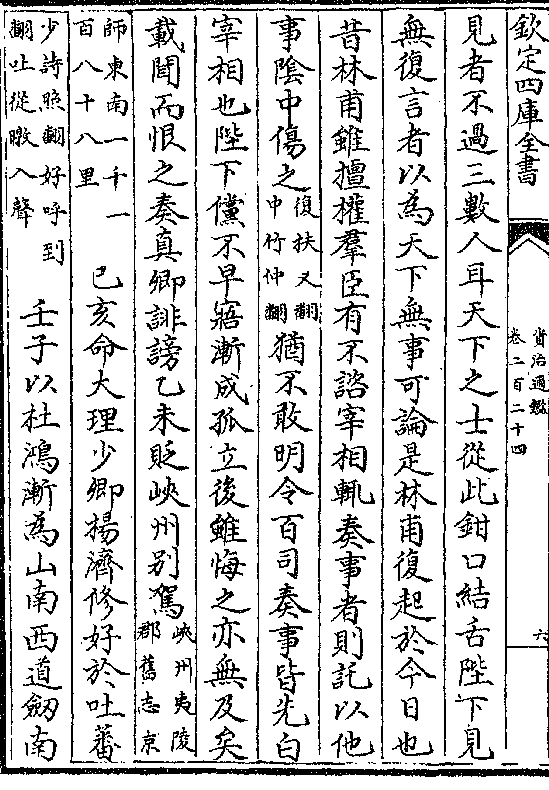 欽定四庫全書
資治通鑑
卷二百二十四
六
見者不過三數人耳天下之士從此鉗口結舌陛下見
無復言者以為天下無事可論是林甫復起於今日也
昔林甫雖擅權羣臣有不諮宰相輒奏事者則託以他
事陰中傷之復扶又翻中竹仲翻猶不敢明令百司奏事皆先白
宰相也陛下儻不早寤漸成孤立後雖悔之亦無及矣
載聞而恨之奏真卿誹謗乙未貶峽州别駕峽州夷陵郡舊志京
師東南一千一百八十八里己亥命大理少卿楊濟修好於吐蕃
少詩照翻好呼到翻吐從暾入聲壬子以杜鴻漸為山南西道劒南